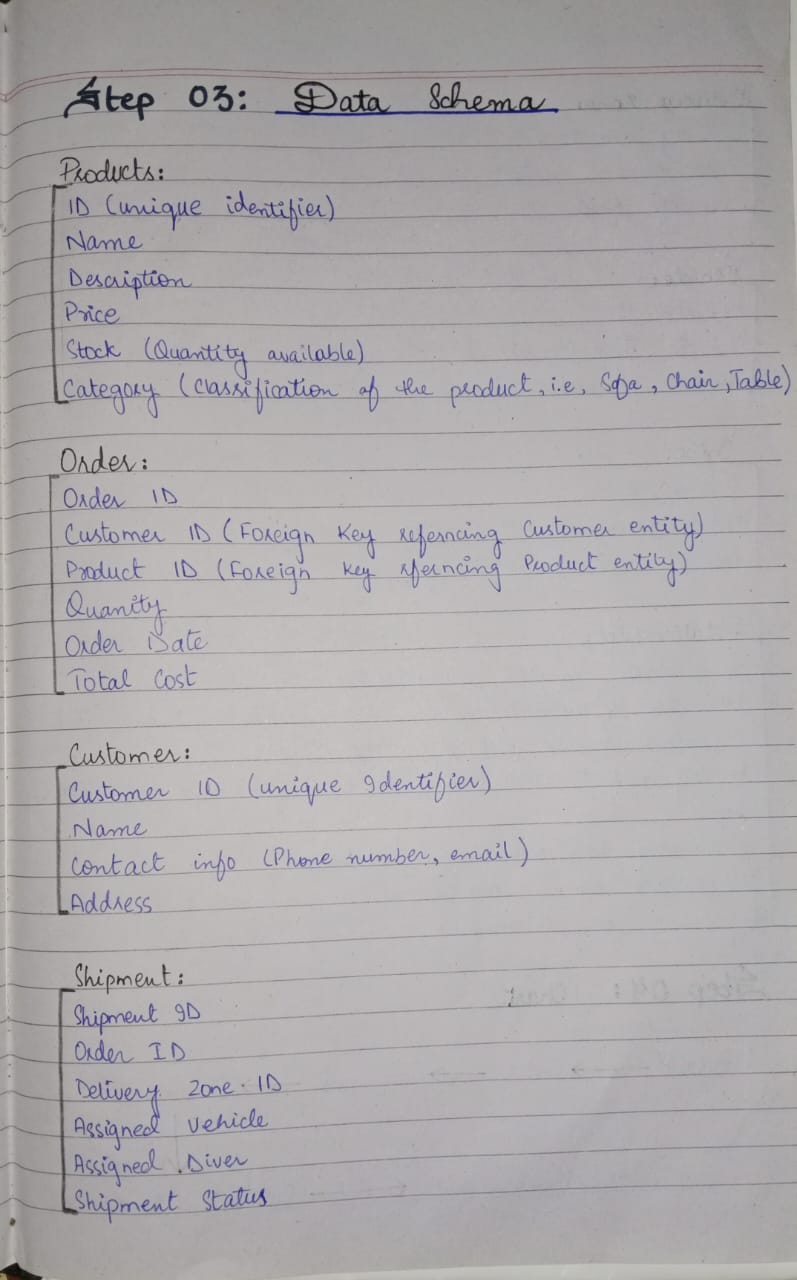 Step 03: Data Schema
Products:
ID (unique identifier)
Name
Description
Price
Stock (Quantity available)
Category (Classification of the product, i.e, Sofa, Chair, Table)
Order:
Order ID
Customer ID (Foreign Key referncing Customer entity)
Product ID (Foreign key referncing Product entity)
Quanity
Order Date
Total Cost
Customer:
Customer ID (unique Identifier)
Name
Contact info (Phone number, email)
Address
Shipment:
Shipment ID
Order ID
Delivery Zone ID
Assigned Vehicle
Assigned Diver
Shipment Status